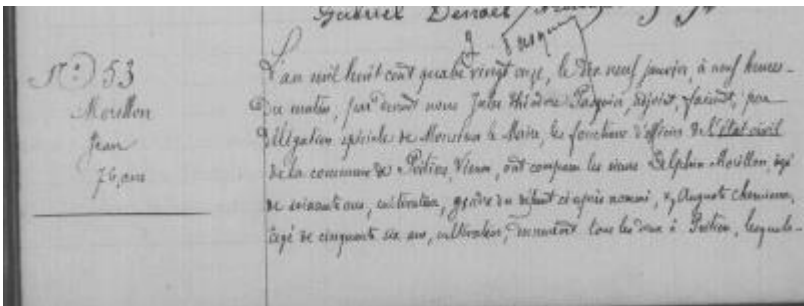 Gabriel Denoel
Pasquier
N° 53
Morillon
Jean
76 ans
L'an mil huit cent quatre vingt onze, le dix neuf janvier, à neuf heures
du matin, par devant nous Jules Théodore Pasquier, adjoint, faisant, par
délégation spéciale de Monsieur le Maire, les fonctions d'officier de l'état civil
de la commune de Poitiers, Vienne, ont comparu les sieurs Delphin Morillon, âgé
de soixante ans, cultivateur, du défunt ci-après nommé, Auguste
âgé de cinquante six ans, cultivateur, demeurant tous les deux à Poitiers, lesquels